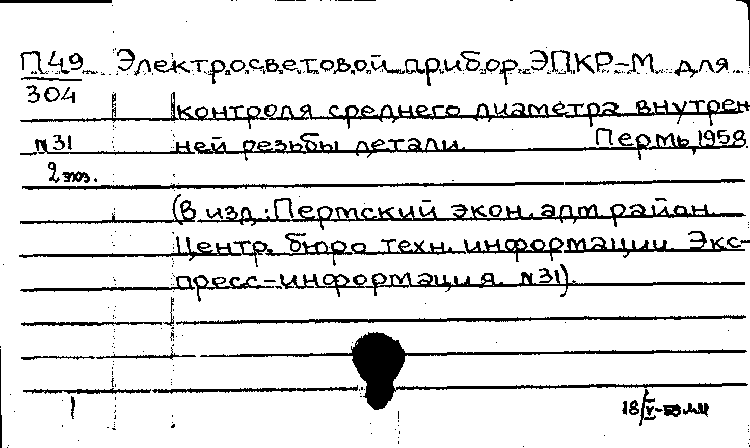 П49 Электросветовой прибор ЭПКР-М для
304
контроля среднего диаметра внутрен
N31 ней резьбы детали. Пермь, 1958
2 экз.
(В изд.: Пермский экон. адм район
Центр. бюро техн. информации Экс-
пресс-информация N31).
1